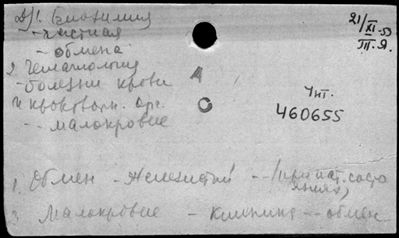 Д/1. Биохимия
- частная
- обмена
2. Гематология
- болезни крови
и кроветворн. орг.
- - малокровие
21/XI-53
III.Я.
Чит.
460655
1. Обмен - железистый - - /при пат. состо
яниях/
3. Малокровие - клиника - обмен